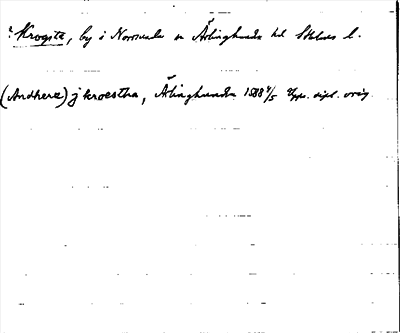 ? Krogsta, by i Norrsunda sn Ärlinghundra hd Sthlms l.
(Andherss) j kroestha, Ärlinghundra 1588 4/5 Upps. dipl. orig.